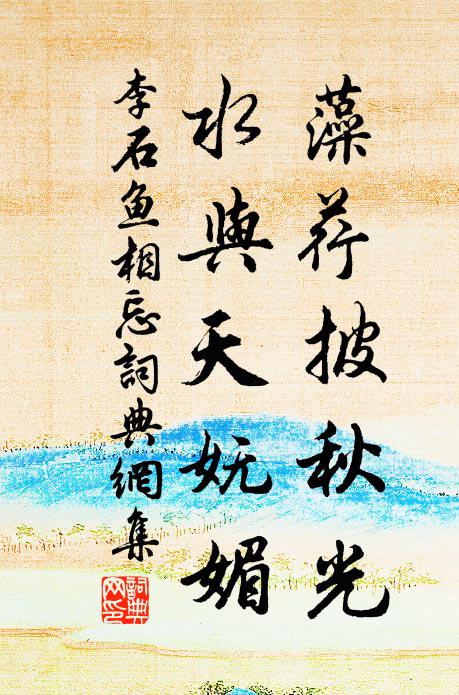 藻荇披秋光
水與天妩媚
李石鱼相忘詞典網集
詞典網印